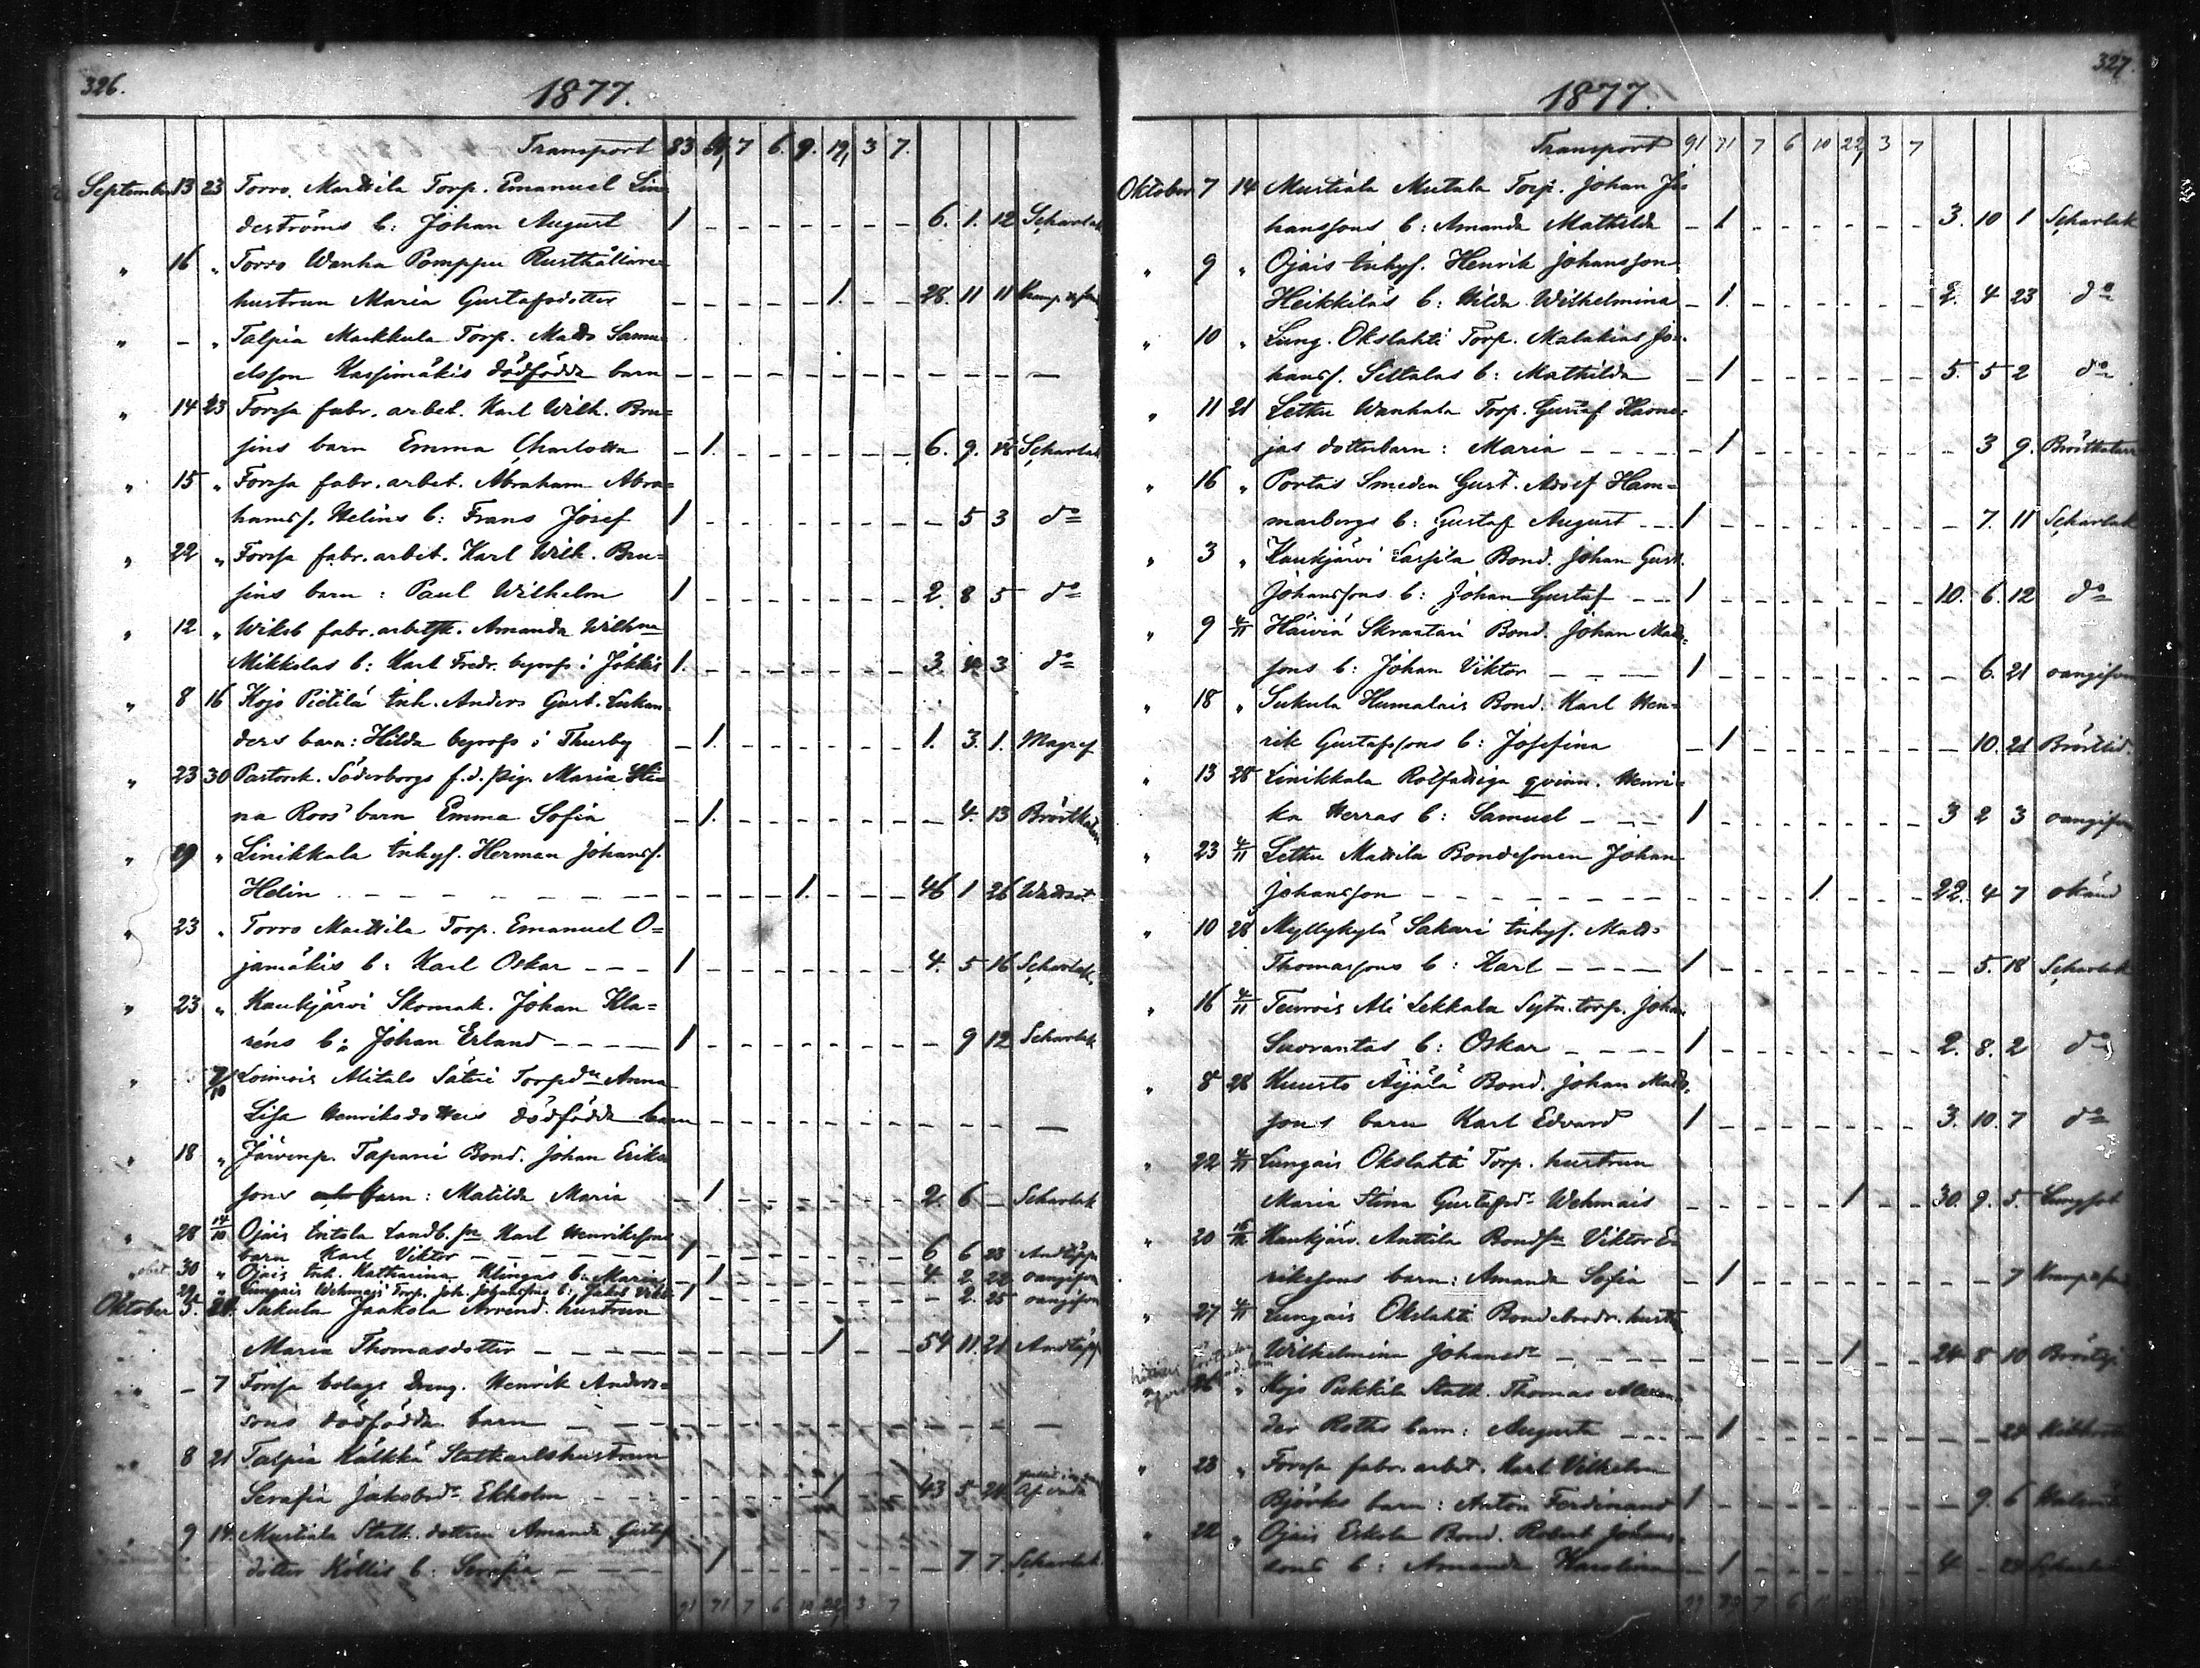 326.
1877.
Transport 83 64 7 6. 9. 19, 3 7.
September 13 23 Torro Mattila Torp. Emanuel Lin
deströms b: Johan August 1 6. 1. 12 Scharlak
" 16 " Torro Wanha Pomppu Rusthållare
hustrun Maria Gustafsdotter 1. 28. 11 11
" - " Talpia Markkula Torp. Matts Samu
elsson Kassimäkis dödfödda barn
" 14 23 Forssa fabr. arbet. Karl Wilh. Bru=
sins barn Emma Charlotta 1. 6. 9. 18 Scharlak
" 15 " Forssa fabr. arbet. Abraham Abra=
hamsf. Helins b: Frans Josef 1 5 3 do
" 22 " Forssa fabr. arbet. Karl Wilh. Bru=
sins barn : Paul Wilhelm 1 2. 8 5 do
" 12 " Wiksb fabr. arbetsk. Amanda Wilhna
Mikkolas b: Karl Fredr. begrofs i Jokkis 1. 3. 4. 3 do
" 8 16 Kojo Pietilä Inh. Anders Gust.
ders barn: Hilda begrofs i Thurby 1. 1. 3. 1. Magref
" 23 30 Pastorsk. Söderborgs f.d. pig. Maria Sti
na Roos' barn Emma Sofia 1. 4. 13
" 29 " Linikkala Inhys. Herman Johansf.
Helin 1. 46 1 26 Wattsot
" 23 " Torro Mattila Torp. Emanuel O=
jamäkis b: Karl Oskar 1 4. 5 16 Scharlak.
" 23 " Kaukjärvi Skomak. Johan Kla=
réns b: Johan Erland 1 9 12 Scharlak
" 7/10 Loimois Alitalo Säteri Torpdn Anna
Lisa Henriksdotters dödfödda barn
" 18 " Järvenp. Tapani Bond. Johan Eriks
sons barn: Matilda Maria 1 2. 6 - Scharlak
" 28 14/10 Ojais Intola Landb. sn Karl Henrikssons
barn Karl Viktor 1 6 6 23 Andtäppa
" 30 " Ojais Inh. Katharina Klingas b: Maria 1 4. 2. 22 oangifven
29 " Lungais Wehmais Torp. Joh. Johanssons b: 1 2. 25 oangifven
Oktober 5. 21. Sukula Jaakola Arrend. hustrun
Maria Thomasdotter 1 54 11 21 Andtäpp
" - 7 Forssa bolags Dreng. Henrik Anders=
sons dödfödda barn
" 8 21 Talpia Kälkkä Statkarlshustrun
Serafia Jakobsdr Ekholm 1 43 5 24
" 9 14. Mustiala Statk. dottern Amanda Gustaf
dotter Kollis b: Serafia 1 7. 7. Scharlak
91 71 7 6 10 22 3 7
327.
1877.
Transport 91 71 7 6 10 22, 3 7
Oktober 7 14 Mustiala Mutala Torp. Johan Jo
hanssons b: Amanda Mathilda 1 3. 10 1 Scharlak
" 9 " Ojais Inhys. Henrik Johansson
Heikkiläs b: Hilda Wilhelmina 1. 2. 4 23 do
" 10 " Lung. Okslahti Torp. Malakias Jo=
hansf. Siltalas b: Mathilda 1 5. 5 2 do
" 11 21 Letku Wanhala Torp. Gustaf
jas dotterbarn : Maria 1 3 9. Bröstkatarr
" 16 " Portas Smeden Gust. Adolf Ham=
marbergs b: Gustaf August 1 7. 11 Scharlak
" 3 " Kaukjärvi Lassila Bond. Johan Gust.
Johanssons b: Johan Gustaf 1 10. 6. 12 do
" 9 4/11 Häiviä Skraatari Bond. Johan Matts
sons b: Johan Viktor 1 6. 21 oangifven
" 18 " Sukula Humalais Bond. Karl Hen=
rik Gustafssons b: Josefina 1 10. 21
" 13 28 Linikkala Rotfattiga qvinn. Henri=
ka Herras b: Samuel 1 3 2 3 oangifven
" 23 4/11 Letku Mattila Bondesonen Johan
Johansson 1. 22. 4 7 okänd
" 10 28 Myllykylä Sakari Inhys. Matts
Thomassons b: Karl 1 5. 18 Scharlak
" 16 4/11 Teurois Ali Lekkala Sytn. torp. Johan
Suorantas b: Oskar 1 2. 8. 2 do
" 8 28 Kuusto Äijälä Bond. Johan Matts
sons barn Karl Edvard 1 3. 10. 7 do
" 22 4/11 Lungais Okslahti Torp. hustrun
Maria Stina Gustafsdr Wehmais 1 30. 9. 5. Lungsot
" 20 Kaukjärv. Anttila Bondsn Viktor E
rikssons barn: Amanda Sofia 1 7
" 27 4/11 Lungais Okslahti Bondebrodr. hustr
Wilhelmina Johansdr 1 24 8 10
26 " Kojo Pukkila Statk. Thomas Alexan
der Roths barn: Augusta 1
" 23 " Forssa fabr. arbet. Karl Vilhelm
Björks barn: Anton Ferdinand 1 9. 6
" 22 " Ojais Eskola Bond. Robert Johans
sons b: Amanda Karolina 1 4 -